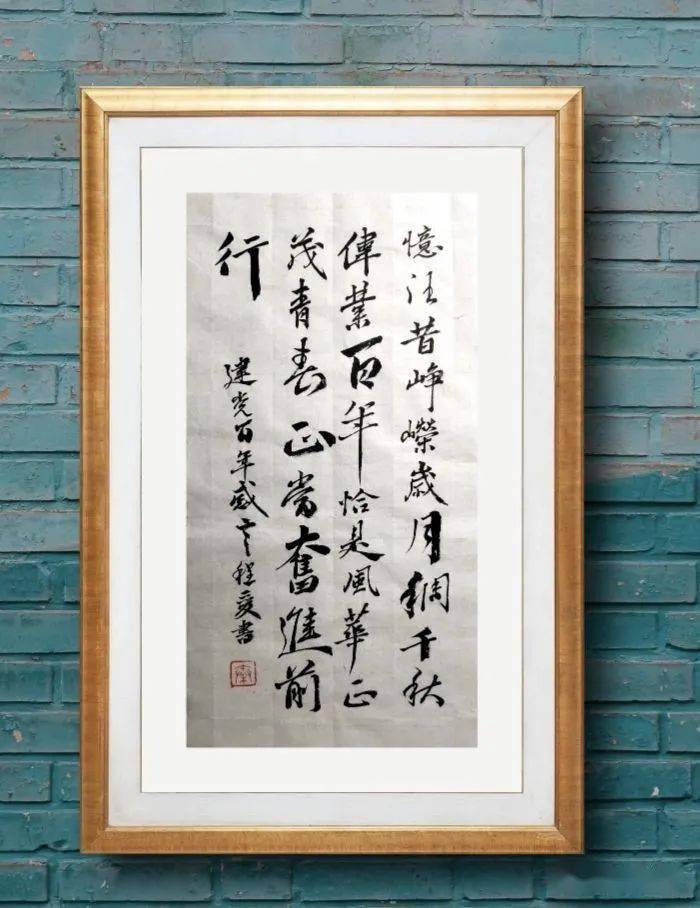 憶往昔崢嶸歲月稠千秋
偉業百年恰是風華正
茂青春正當奮進前
行
建党百年感言程書